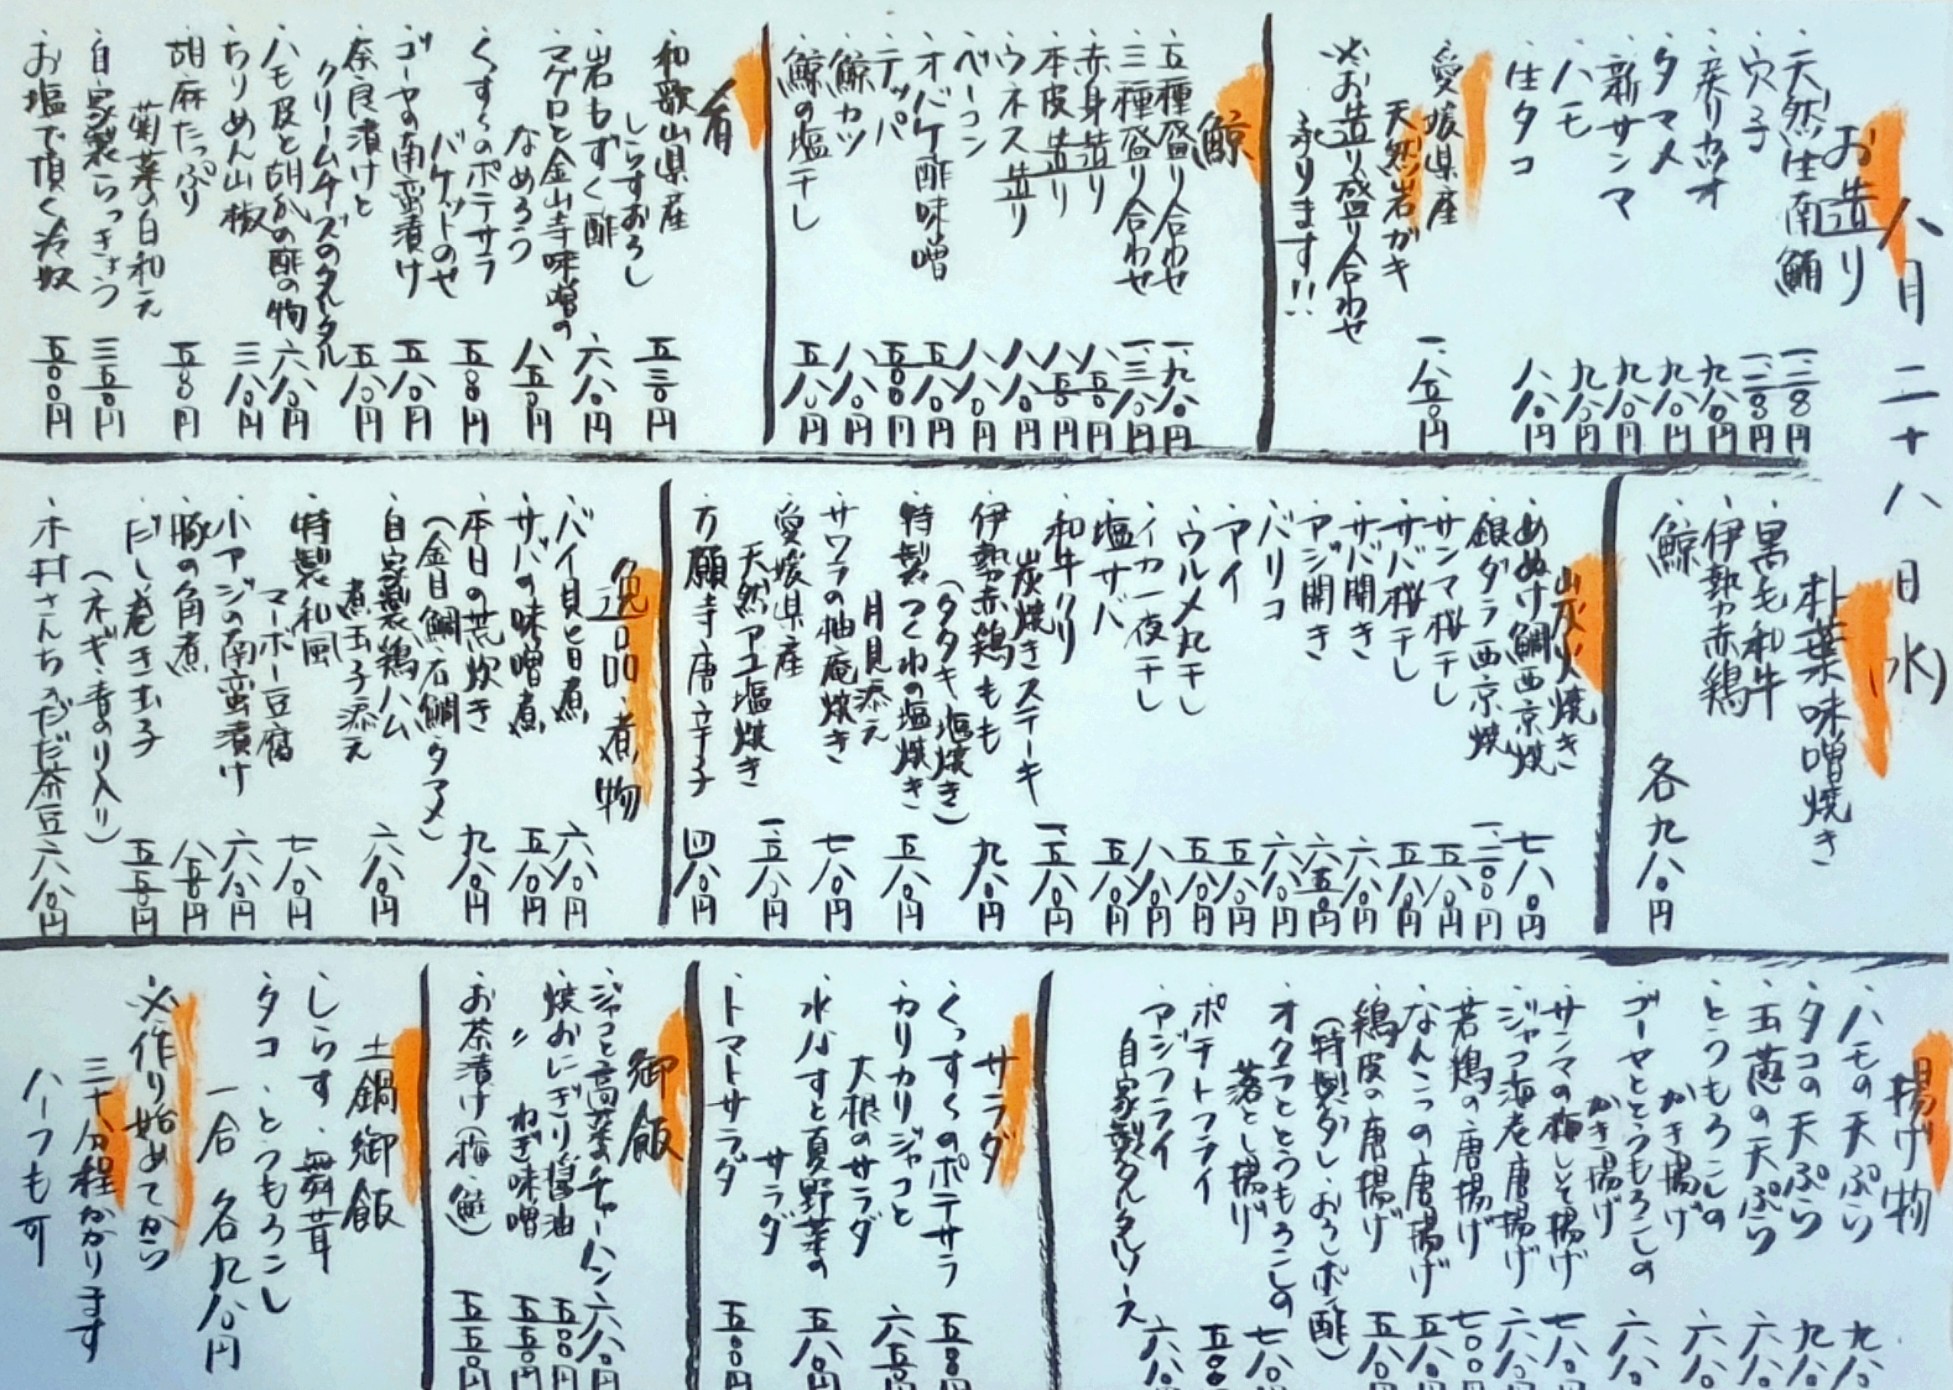 八月二十八日(水)
お造り
・天然生南鮪 一、二八〇円
・穴子 一、二八〇円
・戻りカツオ 九八〇円
・タマメ 九八〇円
・新サンマ 九八〇円
・ハモ 九八〇円
・生タコ 八八〇円
・愛媛県産
天然岩ガキ 一、八五〇円
※お造り盛り合わせ
承ります!!
鯨
・五種盛り合わせ 一、九八〇円
・三種盛り合わせ 一、三八〇円
・赤身造り 八五〇円
・本皮造り 八五〇円
・ウネス造り 八八〇円
・ベーコン 八八〇円
・オバケ酢味噌 五八〇円
・テッパ 五〇〇円
・鯨カツ 八八〇円
・鯨の塩干し 五八〇円
肴
・和歌山県産
しらすおろし 五三〇円
・岩もずく酢 六八〇円
・マグロと金山寺味噌の
なめろう 八五〇円
・くすくのポテサラ
バケットのせ 五八〇円
・ゴーヤの南蛮漬け 五八〇円
・奈良漬けと
クリームチーズのタルタル 五八〇円
・ハモ皮と胡瓜の酢の物 六八〇円
・ちりめん山椒 三八〇円
・胡麻たっぷり
菊菜の白和え 五八〇円
・自家製らっきょう 三五〇円
・お塩で頂く冷奴 五〇〇円
朴葉味噌焼き
・黒毛和牛
・伊勢赤鶏
・鯨
各九八〇円
炭火焼き
・めぬけ鯛西京焼 七八〇円
・銀ダラ西京焼 一、二〇〇円
・サンマ桜干し 五八〇円
・サバ桜干し 五八〇円
・サバ開き 六八〇円
・アジ開き 六五〇円
・バリコ 六八〇円
・アイ 五八〇円
・ウルメ丸干し 五八〇円
・イカ一夜干し 八八〇円
・塩サバ 五八〇円
・和牛イチ
炭焼きステーキ 一、五八〇円
・伊勢赤鶏もも
(タタキ・塩焼き) 九八〇円
・特製つくねの塩焼き 五八〇円
月見添え
・サワラの柚庵焼き 七八〇円
・愛媛県産
天然アユ塩焼き 一、五八〇円
・万願寺唐辛子 四八〇円
逸品・煮物
・バイ貝旨煮 六八〇円
・サバの味噌煮 五八〇円
・本日の荒炊き 九八〇円
(金目鯛・石鯛・タマメ)
・自家製鶏ハム
煮玉子添え 六八〇円
・特製和風
マーボー豆腐 七八〇円
・小アジの南蛮漬け 六八〇円
・豚の角煮 八五〇円
・だし巻き玉子 五五〇円
(ネギ・青のり入り)
・木村さんちのだだ茶豆 六八〇円
揚げ物
・ハモの天ぷら 九八〇
・タコの天ぷら 九八〇
・玉葱の天ぷら 六八〇
・とうもろこしの
かき揚げ 六八〇
・ゴーヤととうもろこしの
かき揚げ 六八〇
・サンマの梅しそ揚げ 七八〇円
・ジャコ海老唐揚げ 六八〇円
・若鶏の唐揚げ 七〇〇円
・なんこつの唐揚げ 五八〇円
・鶏皮の唐揚げ 五八〇円
(特製ダレ・おろしポン酢)
・オクラととうもろこしの
落とし揚げ 七八〇円
・ポテトフライ 五〇〇円
・アジフライ
自家製タルタルソース 六八〇円
サラダ
・くっすくのポテサラ 五八〇円
・カリカリジャコと
大根のサラダ 六五〇円
・水ナスと夏野菜の
サラダ 五八〇円
・トマトサラダ 五〇〇円
御飯
・ジャコと高菜のチャーハン 六八〇円
・焼おにぎり醤油 五〇〇円
・〃 ねぎ味噌 五五〇円
・お茶漬け(梅・鮭) 五五〇円
土鍋御飯
・しらす・舞茸
・タコ・とうもろこし
一合 各九八〇円
※作り始めてから
三十分程かかります
ハーフも可